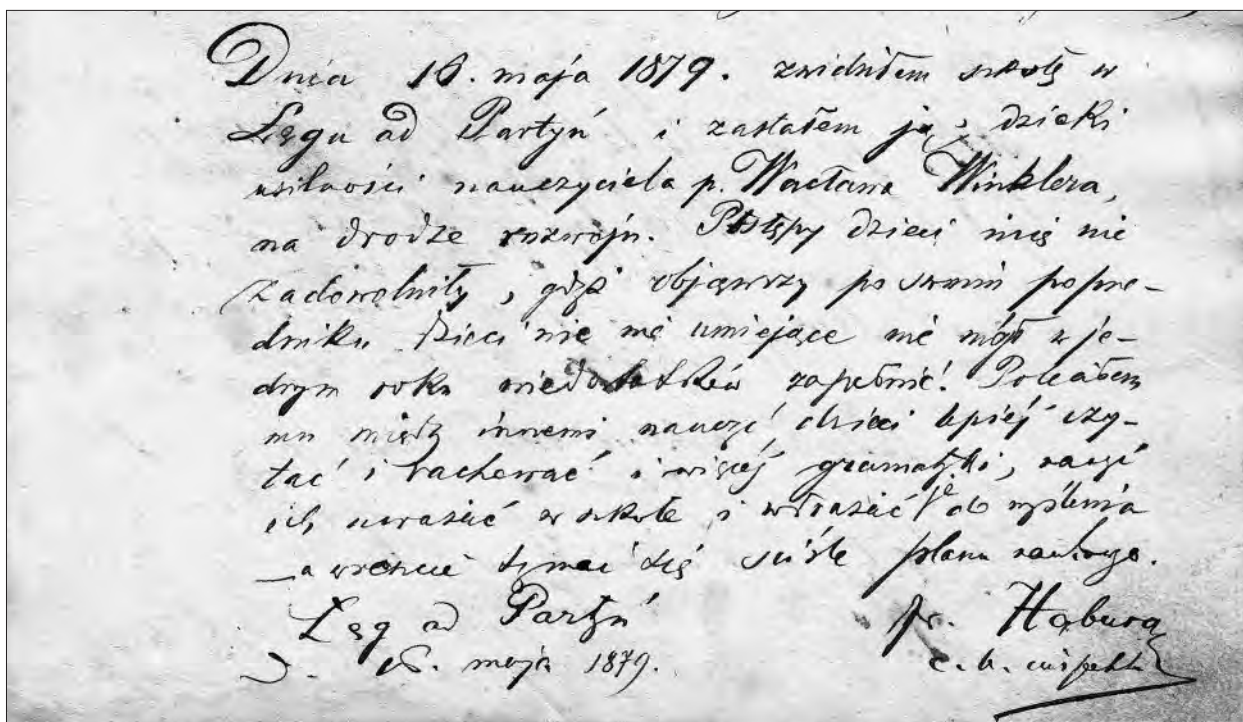 Dnia 16. maja 1879. zwiedziłem szkołę w
Łęgu ad Partyń i zastałem ją, dzięki
usilności nauczyciela p. Wacława Winklera,
na drodze rozwoju. Postępy dzieci mię nie
zadowolniły, gdyż objąwszy po swoim poprze-
dniku dzieci nic nie umiejące nie mógł w je-
dnym roku niedostatków zapełnić. Poleciłem
mu między innemi nauczyć dzieci lepiej czy-
tać i rachować i więcej gramatyki, nauczyć
ich uważać w szkole i wdrażać je do myślenia
a wreszcie trzymać się ściśle planu naukowego.
Łęg ad Partyń
D. 16. maja 1879.
Fr. Habura
c. k. inspekt